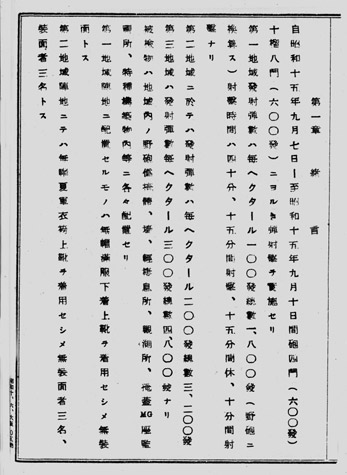 第一章 緒言
自昭和十五年九月七日至昭和十五年九月十日間砲四門(六〇〇發)
十榴八門(六〇〇發)ニヨルきい弾射撃ヲ實施セリ
第一地域發射弾數ハ毎ヘクタール一〇〇發總數一、八〇〇發(野砲ニ
換算ス)射撃時間ハ四十分、十五分間射撃、十五分間休、十分間射
撃ナリ
第二地域ニ於テハ發射弾數ハ毎ヘクタール二〇〇發總數三、二〇〇發
第三地域ハ發射弾數ハ毎ヘクタール三〇〇發總數四、八〇〇發ナリ
被検物ハ地域内ノ野砲偽掩體、壕、輕掩息所、觀測所、掩蓋MG座監
、特種構築物内等ニ各々配置セリ
第一地域陣地ニ配置セルモノハ無帽満服下着上靴ヲ着用セシメ無装
面トス
第二地域陣地ニテハ無帽夏軍衣袴上靴ヲ着用セシメ無装面者三名、
装面者三名トス